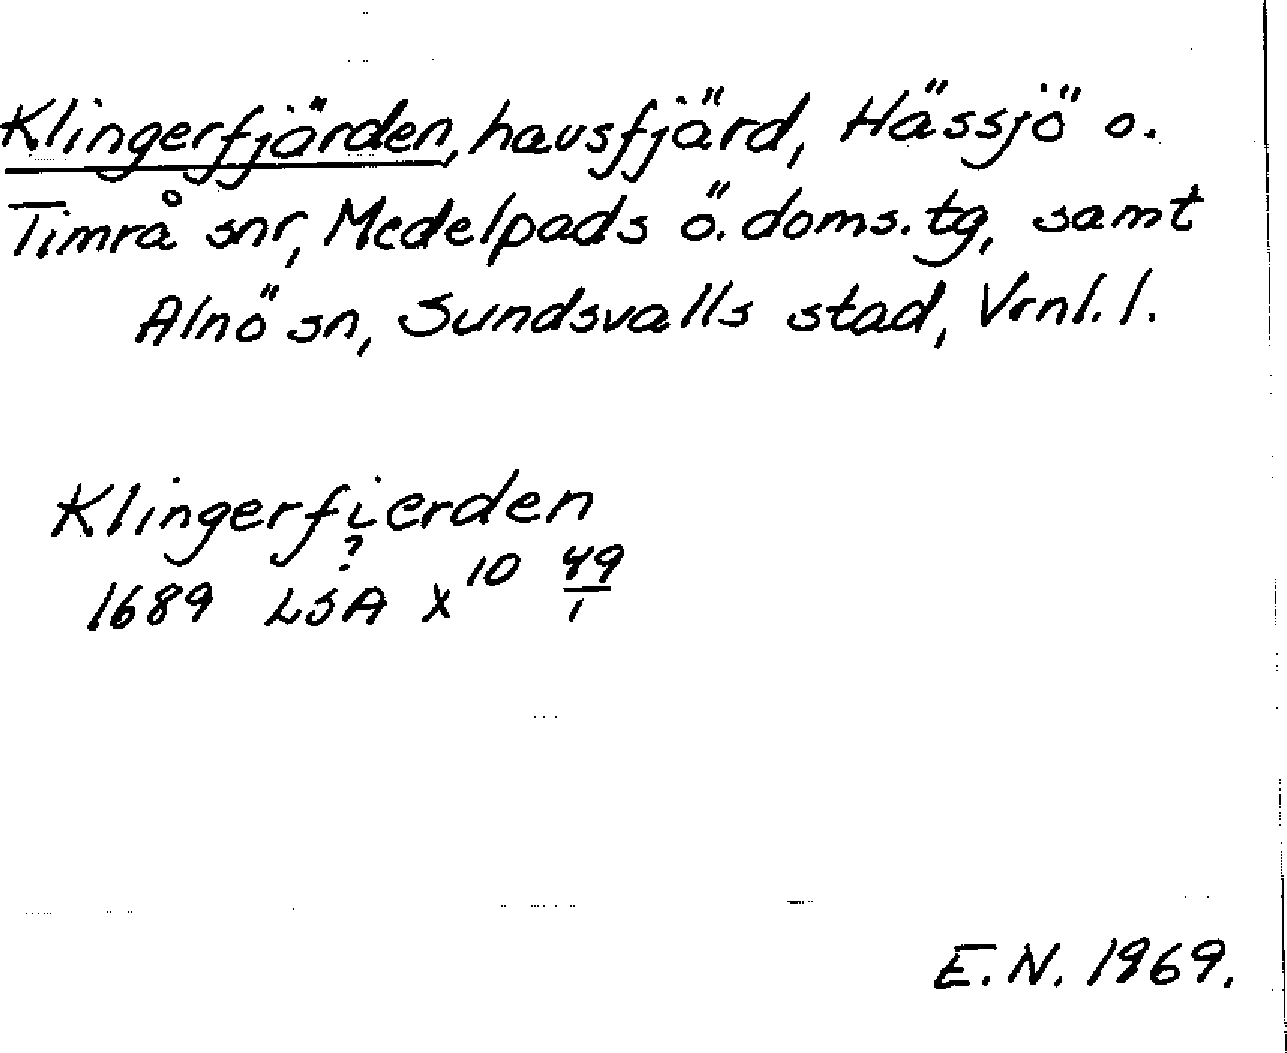 Klingerfjärden, havsfjärd, Hässjö o.
Timrå snr, Medelpads ö. doms. tg, samt
Alnö sn, Sundsvalls stad, Vrnl. l.
Klingerfierden
?
1689 LSA X 10 49/1
E. N. 1969.